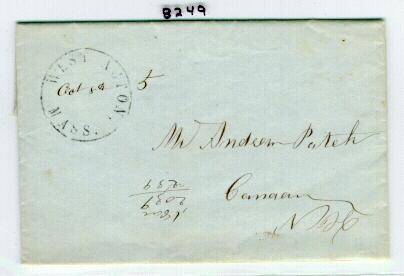 8249
WEST ACTON
MASS.
Oct
5
Mr Andrew Patch
Canaan